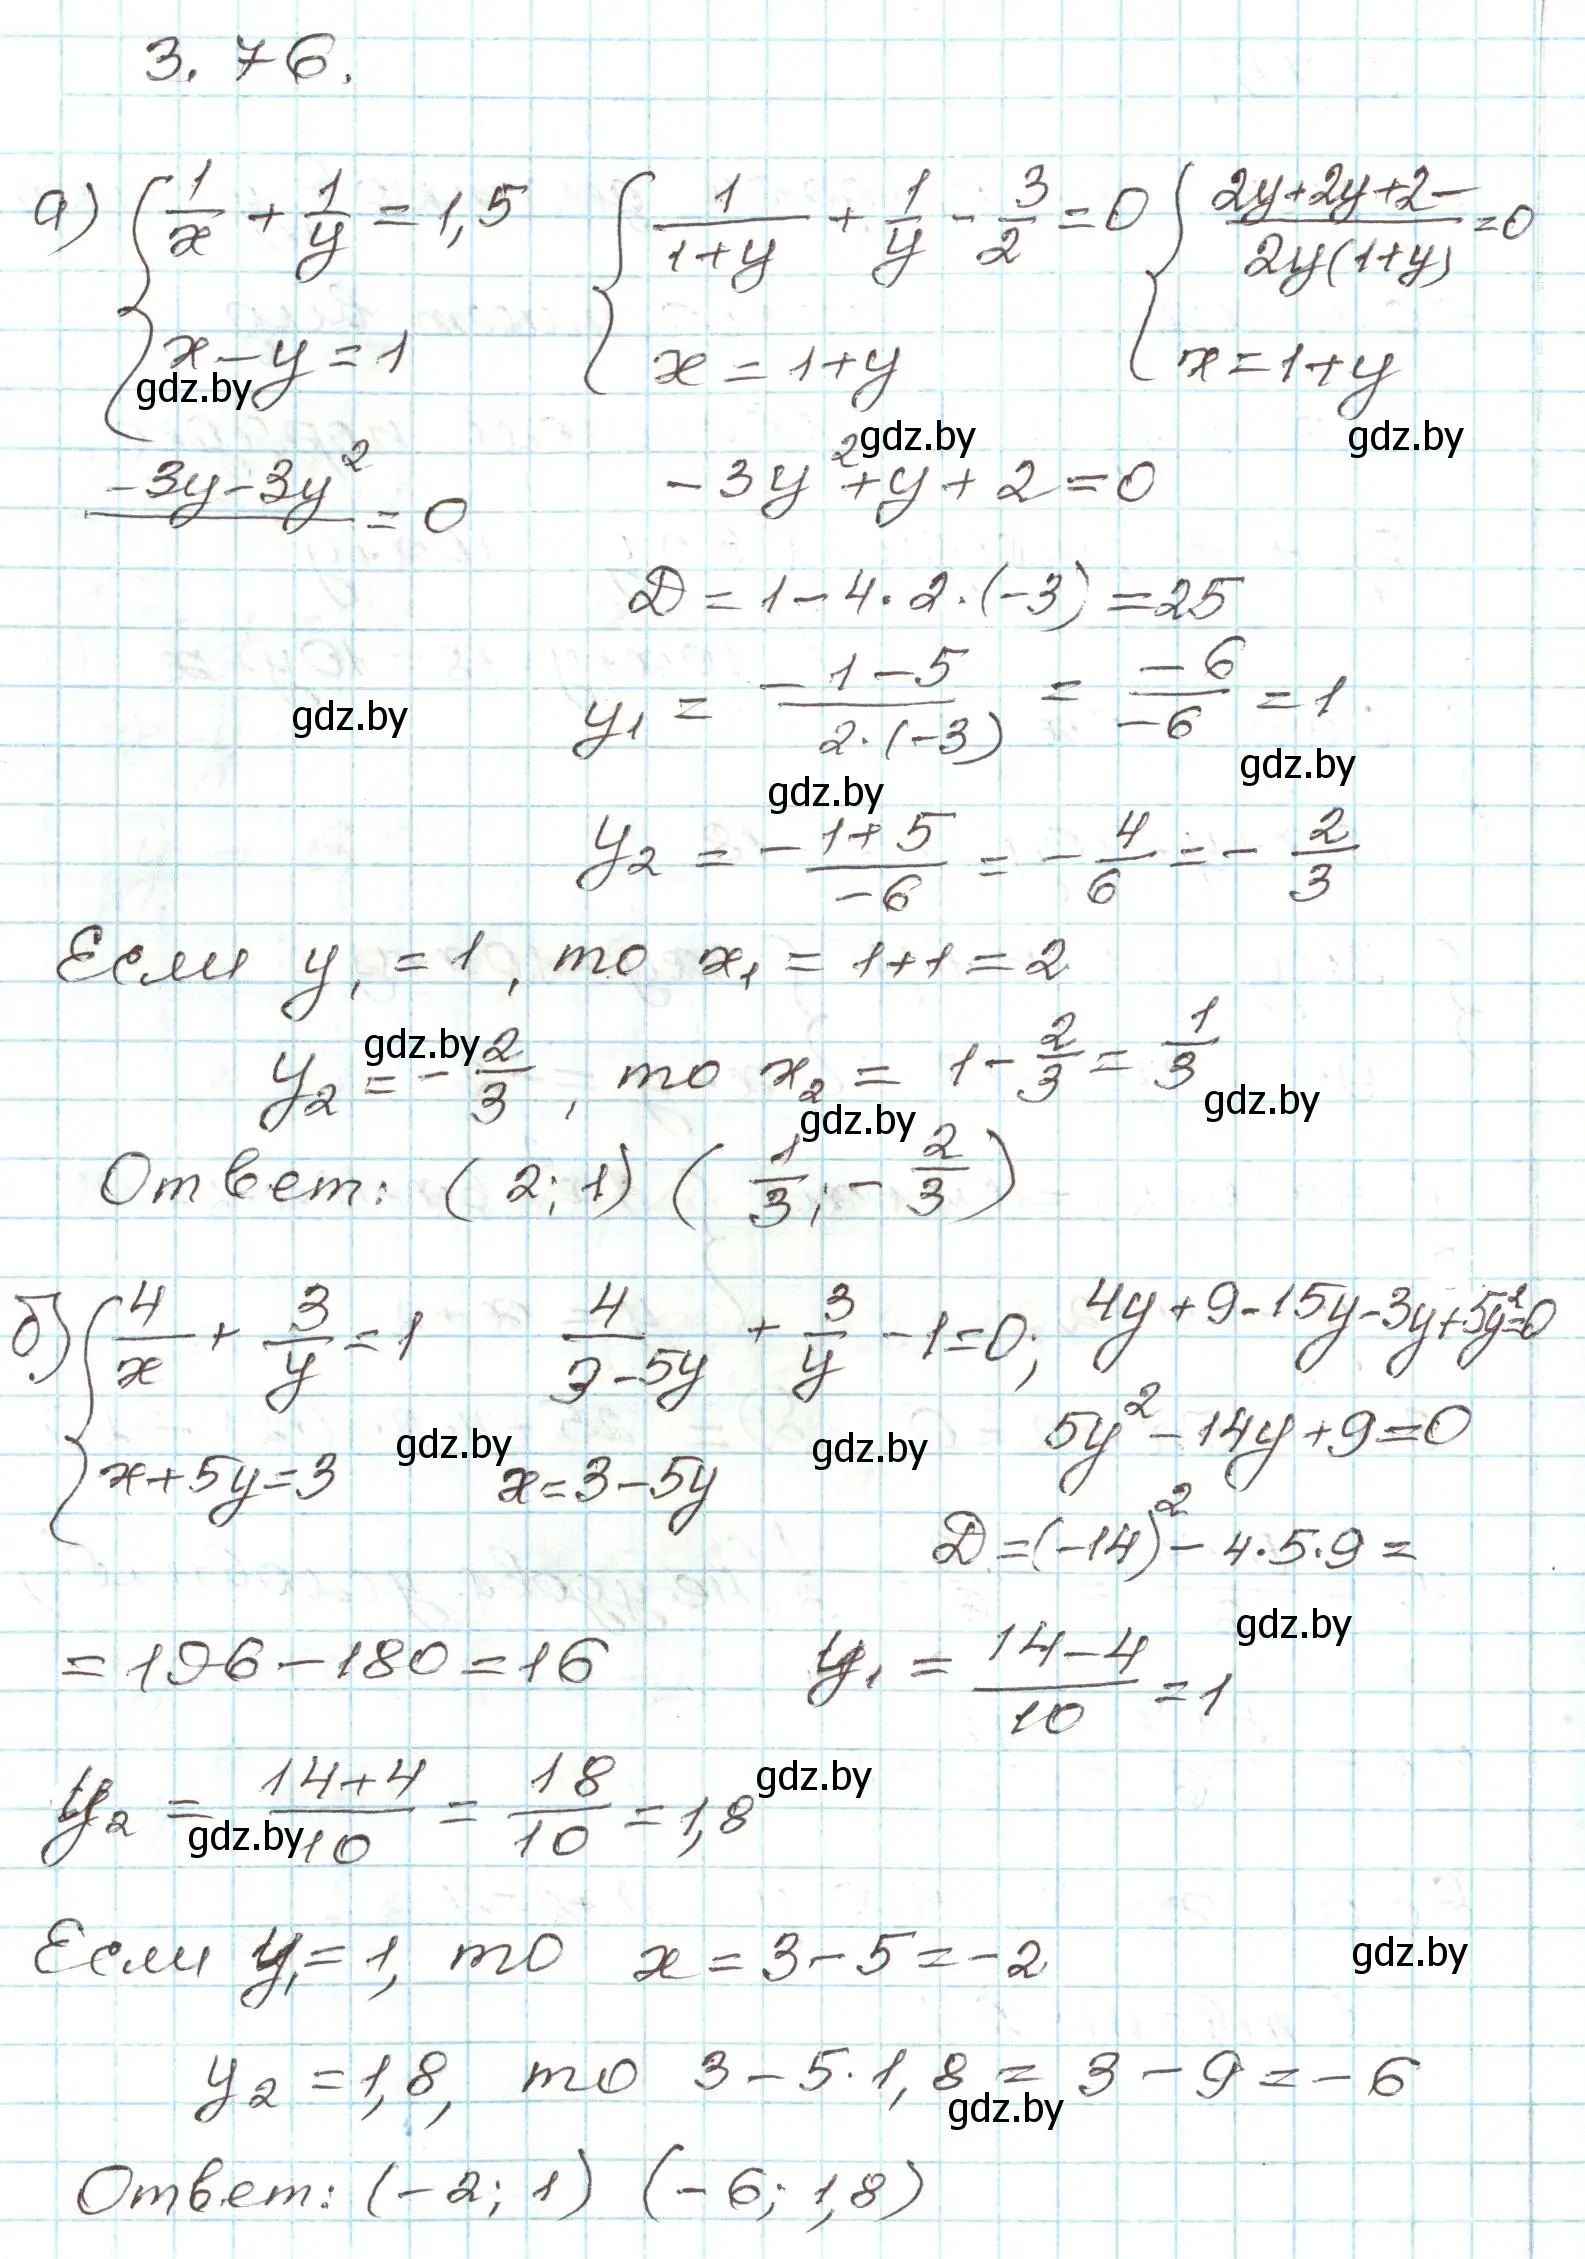 3. 76.
а) { 1/x + 1/y = 1,5   { 1/(1+y) + 1/y - 3/2 = 0   { (2y+2y+2-)/(2y(1+y)) = 0
x - y = 1   x = 1+y   x = 1+y
gdz.by
gdz.by gdz.by
(-3y-3y²)/ = 0   -3y²+y+2=0
D = 1 - 4·2·(-3) = 25
y₁ = (-1-5)/(2·(-3)) = -6/-6 = 1
gdz.by
gdz.by
gdz.by
y₂ = -(1+5)/-6 = -4/6 = -2/3
Если y₁ = 1, то x₁ = 1+1 = 2
gdz.by
y₂ = -2/3, то x₂ = 1 - 2/3 = 1/3
gdz.by gdz.by
Ответ: (2; 1) (1/3; -2/3)
б) { 4/x + 3/y = 1   4/(3-5y) + 3/y - 1 = 0;   4y+9-15y-3y+5y²=0
5y²-14y+9=0
gdz.by gdz.by
x+5y=3   x=3-5y
D=(-14)²-4·5·9=
gdz.by
=196-180=16   y₁ = (14-4)/10 = 1
gdz.by
y₂ = (14+4)/10 = 18/10 = 1,8
gdz.by
Если y₁=1, то x = 3-5 = -2
gdz.by
y₂ = 1,8, то 3-5·1,8 = 3-9 = -6
gdz.by
Ответ: (-2; 1) (-6; 1,8)